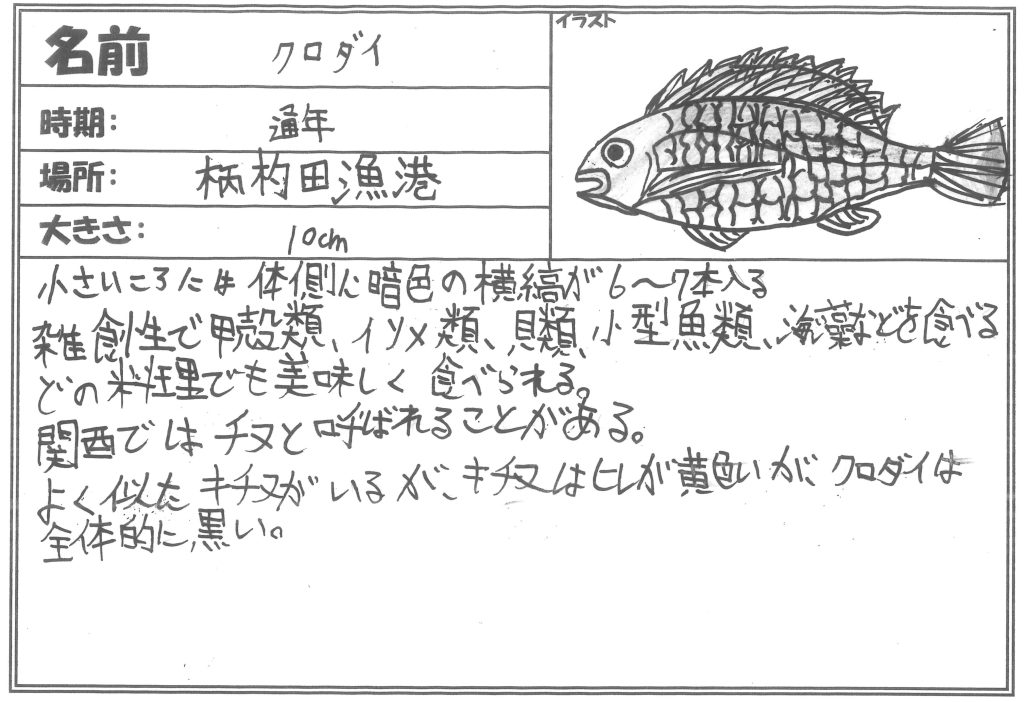 名前 クロダイ
イラスト
時期: 通年
場所: 柄杓田漁港
大きさ: 10cm
小さいころには体側に暗色の横縞が6〜7本入る
雑創性で甲殻類、イソメ類、貝類、小型魚類、海藻などを食べる
どの料理でも美味しく食べられる。
関西ではチヌと呼ばれることがある。
よく似たキチヌがいるが、キチヌはヒレが黄色いが、クロダイは
全体的に黒い。